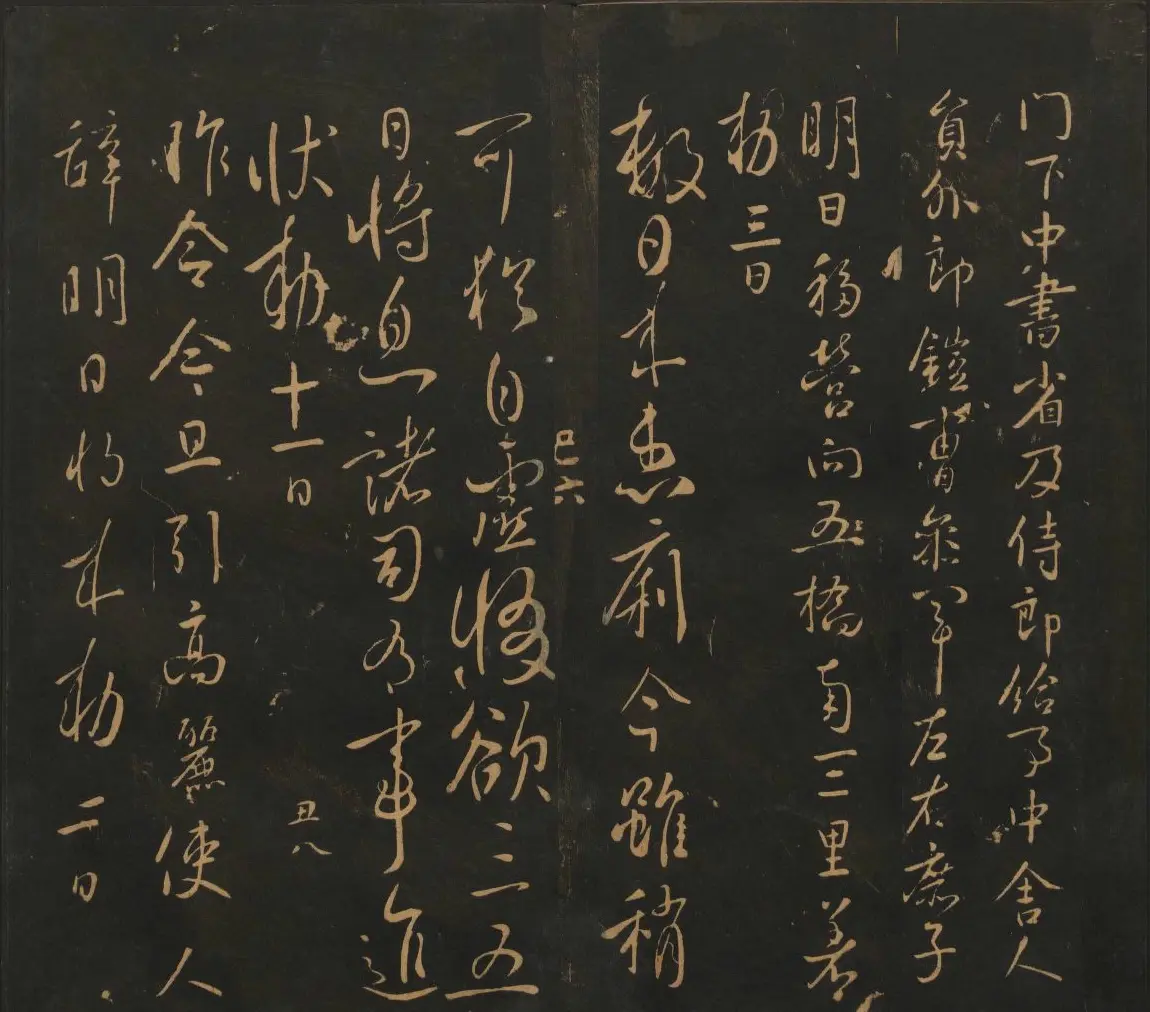 门下中書省及侍郎給事中舍人
員外郎鎧曹參軍左右庶子
明日移營向五橋南三里著
勑三日
數日來患痢今雖稍
巳六
可猶自虛惙欲三五
日將息諸司有事進
狀勅十一日
丑八
昨令今旦引高麗使人
辞明日將來勅二日